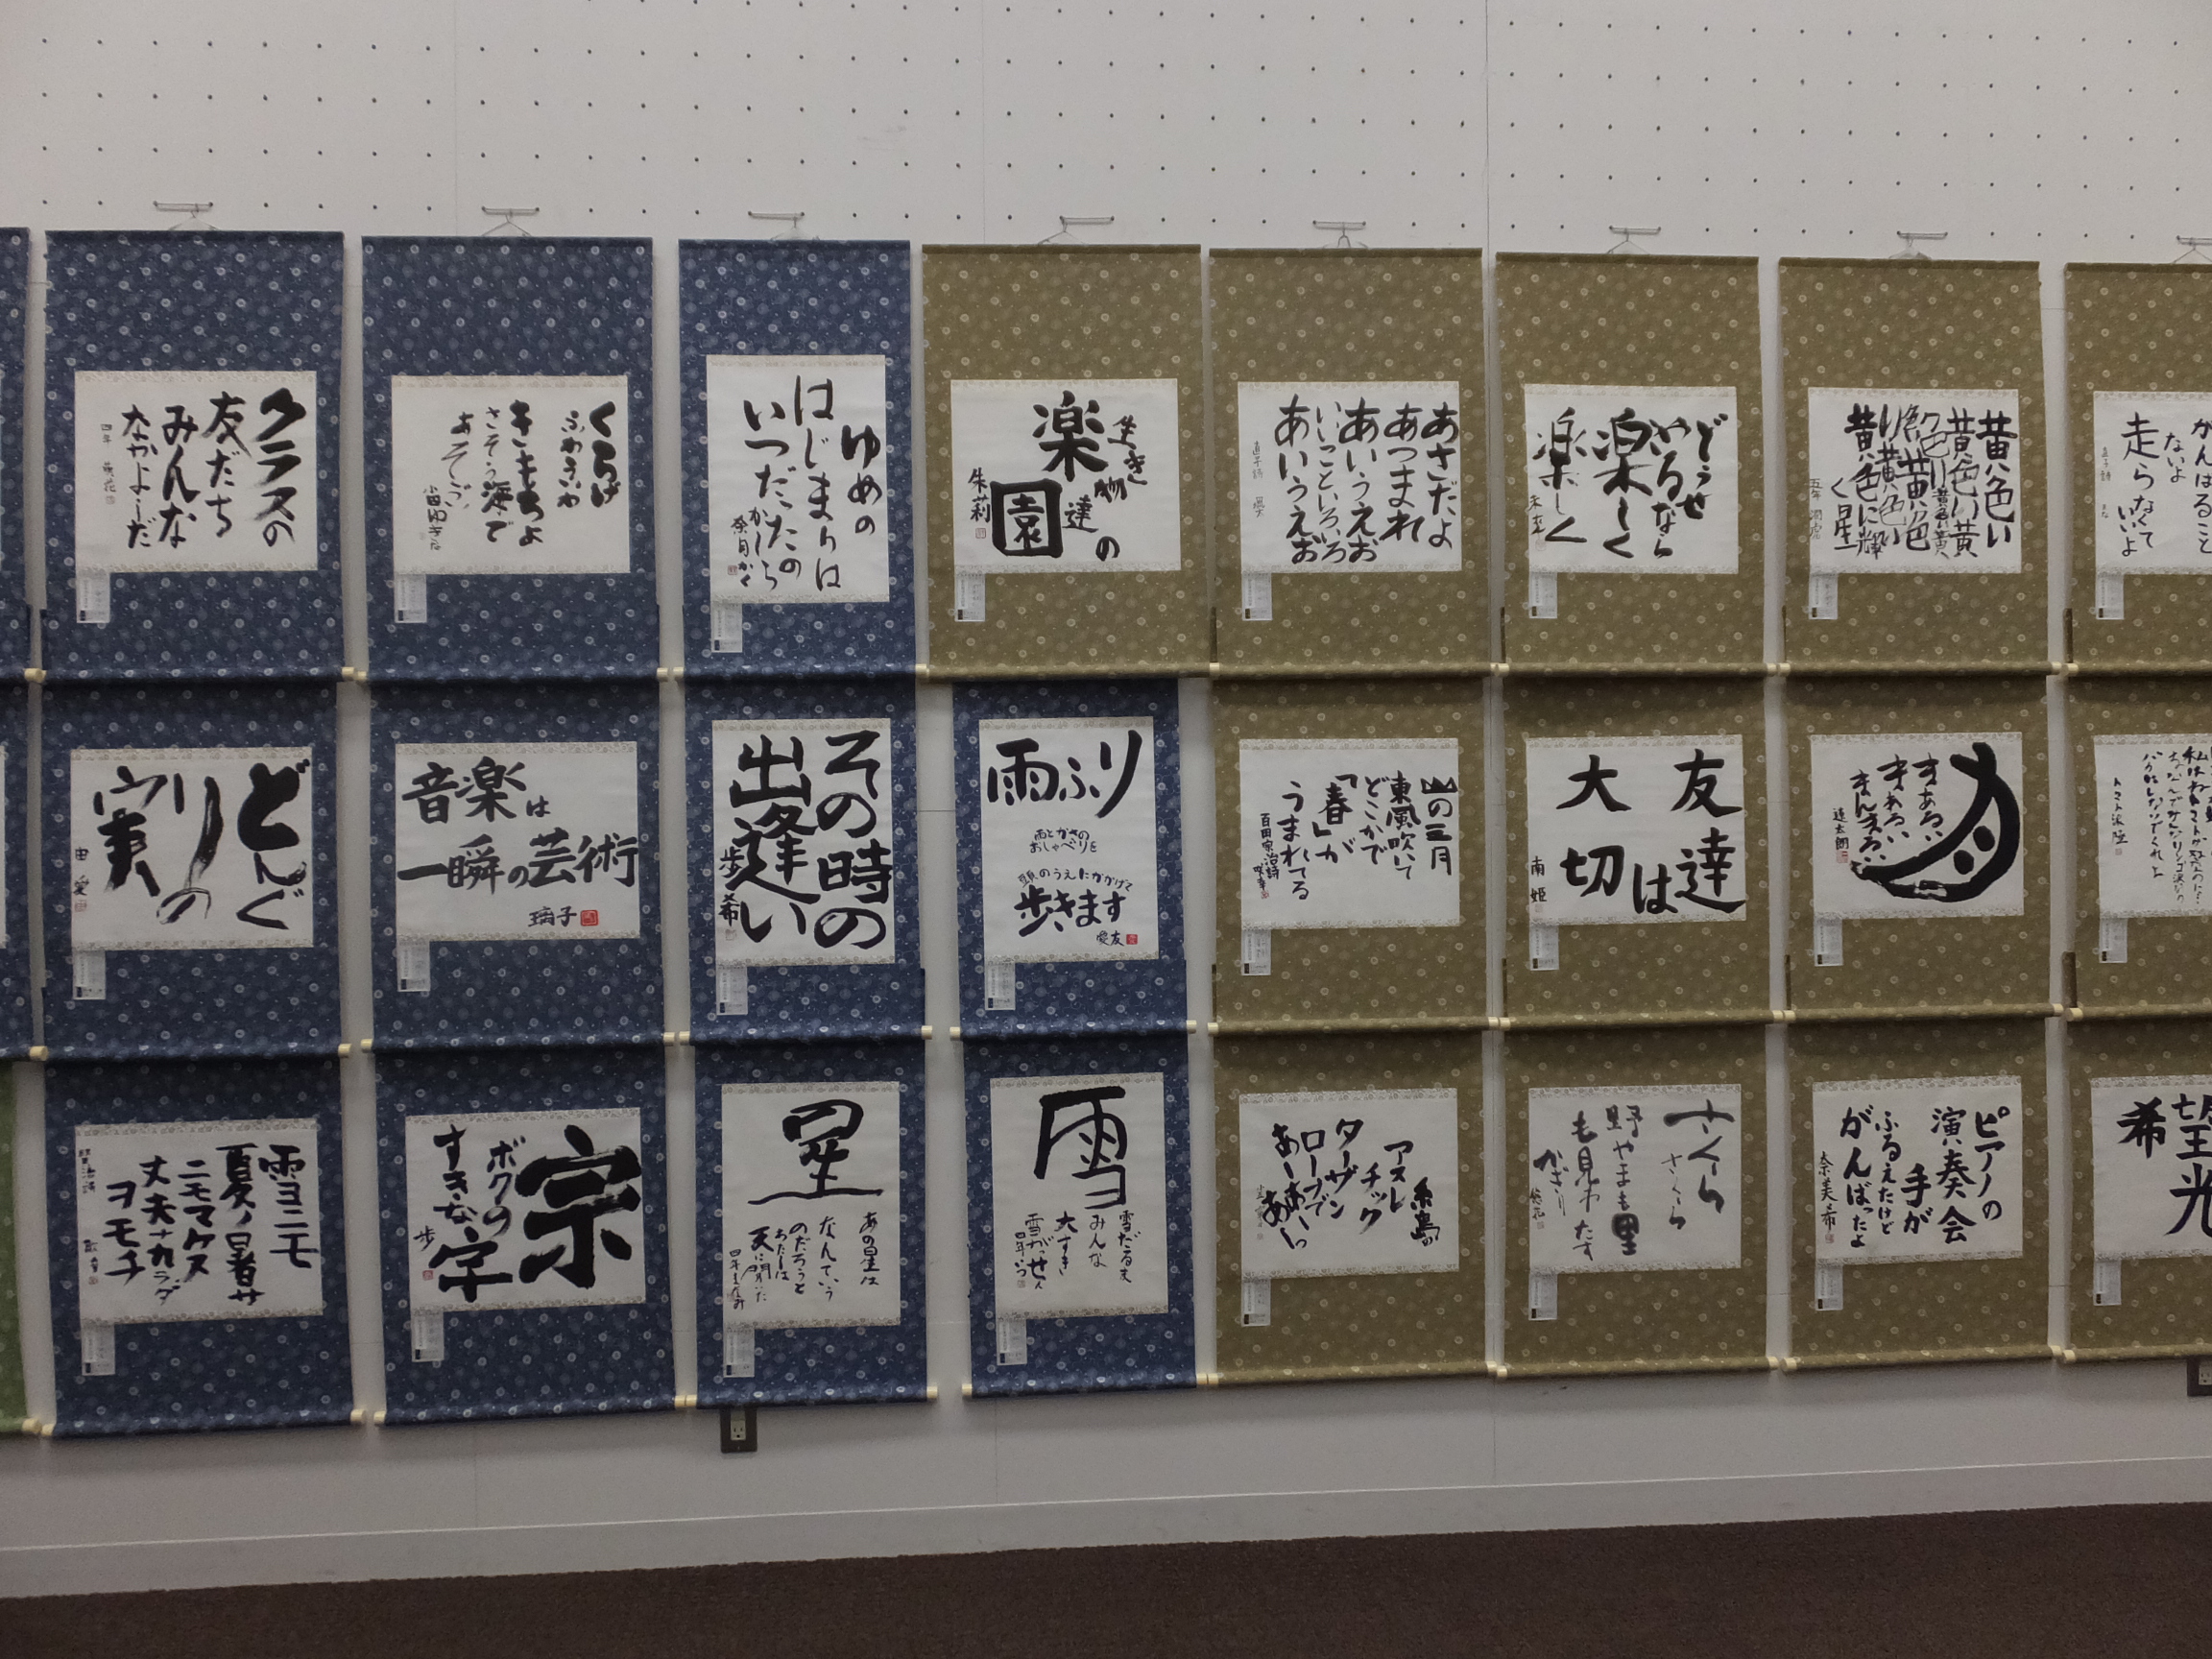 クラスの
友だち
みんな
なかよしだ
くらげ
ふわふわ
きもちよ
さそう海で
ゆめの
はじまりは
いつだったの
かしら
生き
物
達
の
楽
園
朱莉
あさだよ
あつまれ
あいうえお
いっこといろいろ
あいうえお
どうせ
やるなら
楽しく
楽しく
未来
黄色い
黄色い黄
黄色に輝
く星
五年
がんばること
ないよ
走らなくて
いいよ
どんぐ
りの
実
由愛
音楽は
一瞬の芸術
璃子
その時の
出逢い
歩希
雨ふり
雨とかさの
おしゃべりを
頭のうえにかかげて
歩きます
愛友
山の三月
東風吹いて
どこかで
「春」が
うまれてる
百田宗治詩
友達は
大切
南姫
月
まあるい
まあるい
まんまるい
遼太朗
雪ニモ
夏ノ暑サ
ニモマケヌ
丈夫ナカラダ
ヲモチ
賢治詩
宗
ボクの
すきな
字
歩
星
あの星は
なんていう
のだろうと
わたしは
天に聞いた
雪
雪だるま
みんな
大すき
雪がっせん
糸島の
アスレ
チック
ターザン
ロープで
あーああーっ
さくら
さくら
野やまも里
も見わたす
かぎり
ピアノの
演奏会
手が
ふるえたけど
がんばったよ
奈美希
望
希
光